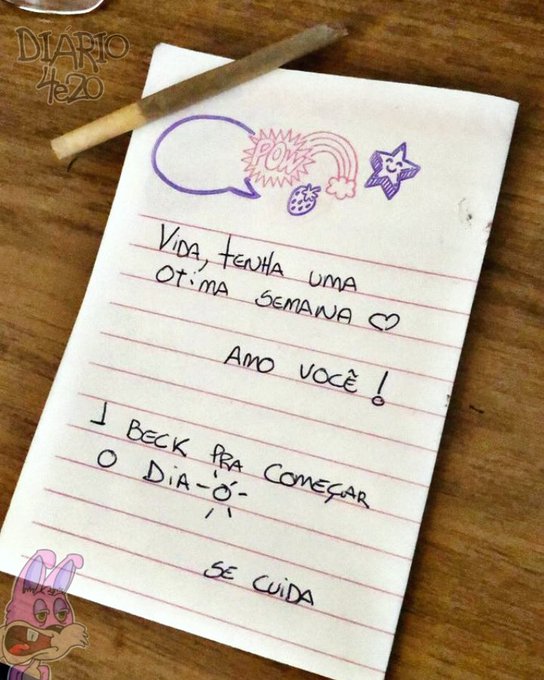 DIÁRIO
4e20
POW
VIDA, TENHA UMA
OTIMA SEMANA ♡
AMO VOCÊ!
1 BECK PRA COMEÇAR
O DIA
SE CUIDA